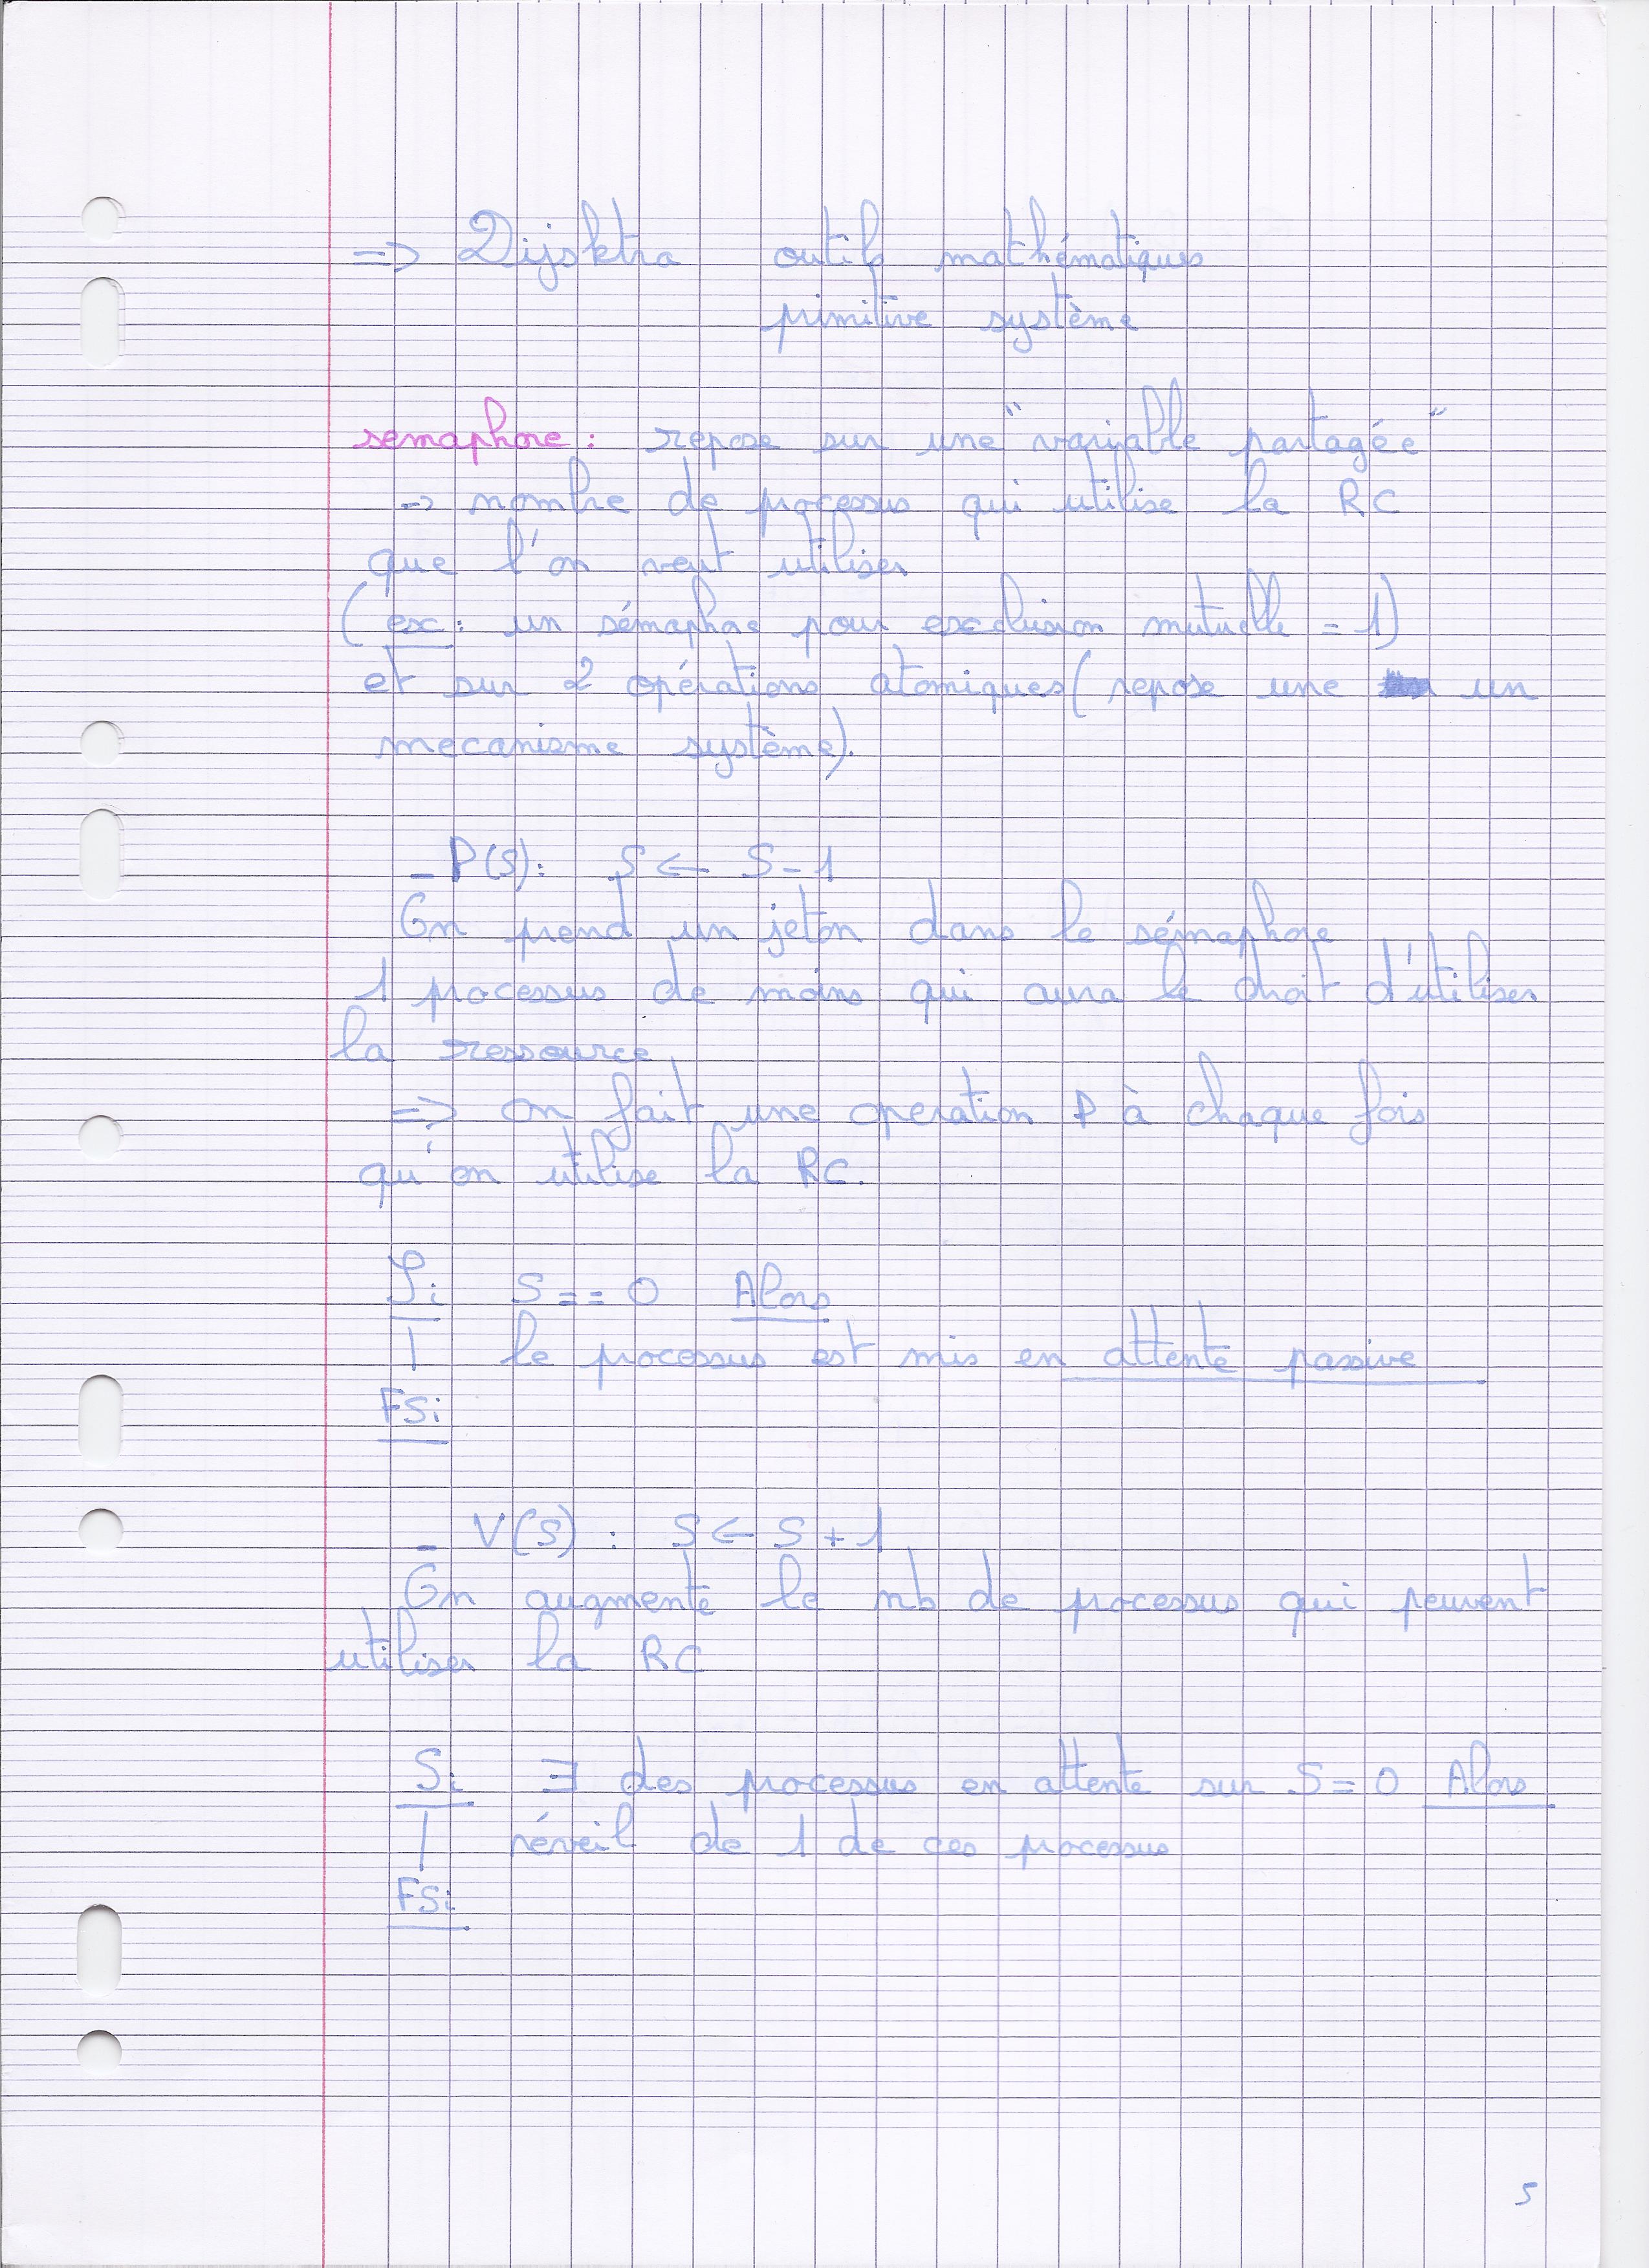 => Dijsktra outils mathématiques
primitive système
semaphore : repose sur une "variable partagée"
=> nombre de processus qui utilise la RC
que l'on veut utiliser
(ex : un sémaphore pour exclusion mutuelle = 1)
et sur 2 opérations atomiques (repose une un
mecanisme système).
_ P(S): S <- S - 1
On prend un jeton dans le sémaphore
1 processus de moins qui aura le droit d'utiliser
la ressource
=> on fait une operation P à chaque fois
qu'on utilise la RC.
Si S == 0 Alors
| le processus est mis en attente passive
FSi
_ V(S) : S <- S + 1
On augmente le nb de processus qui peuvent
utiliser la RC
Si ∃ des processus en attente sur S = 0 Alors
| réveil de 1 de ces processus
FSi
5